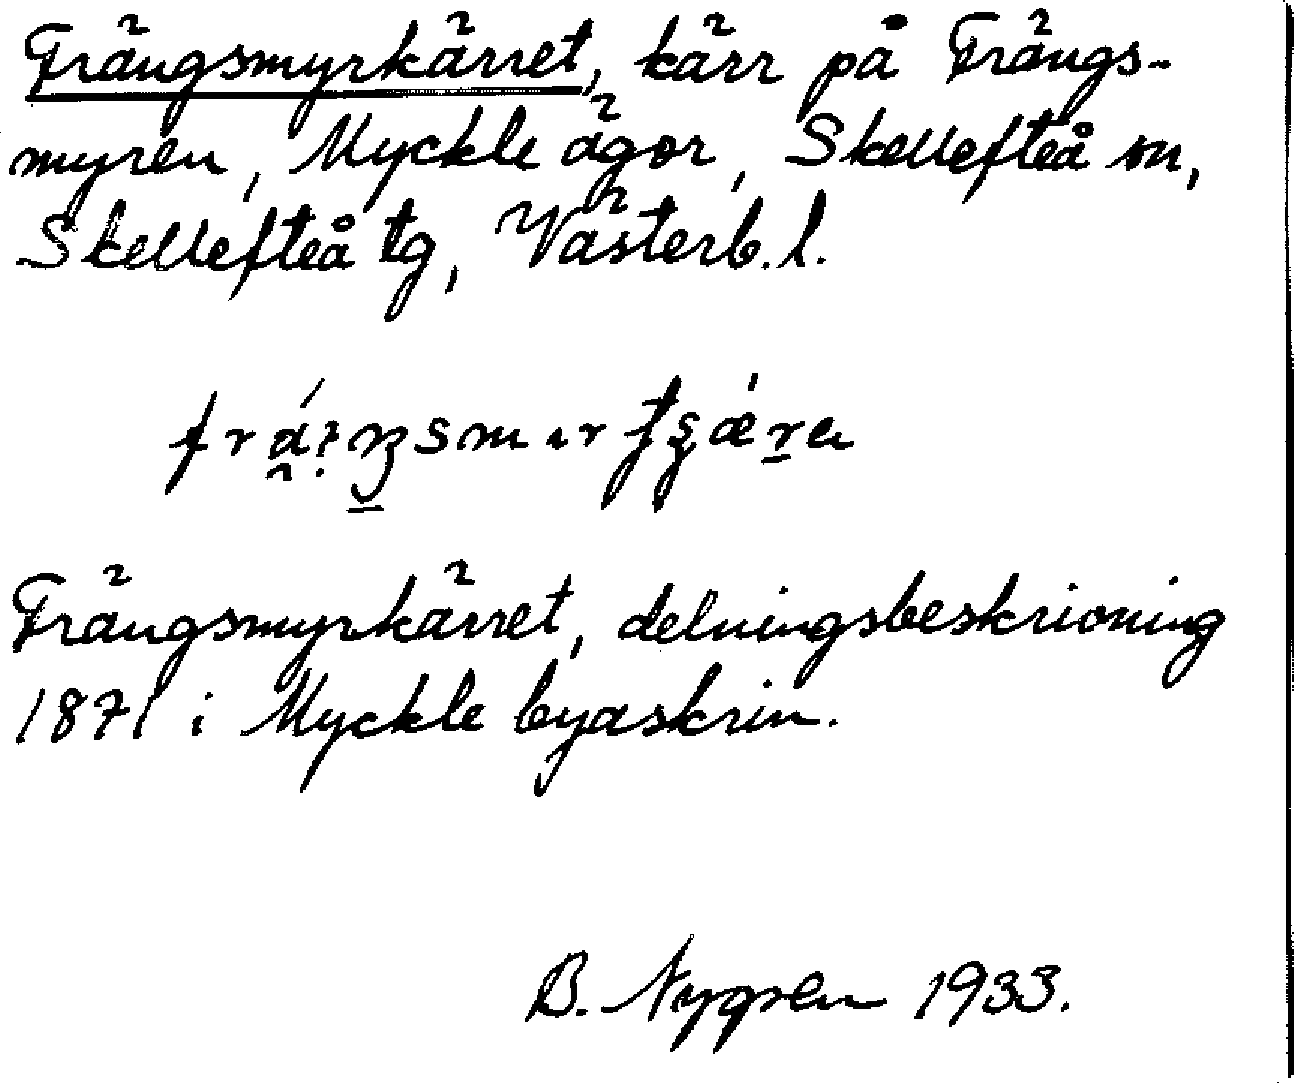 Frängsmyrkärret, kärr på Frängs-
myren, Myckle ägor, Skellefteå sn,
Skellefteå tg, Västerb. l.
Frängsmyrkärret, delningsbeskrivning
1871 i Myckle byaskrin.
B. Nygren 1933.